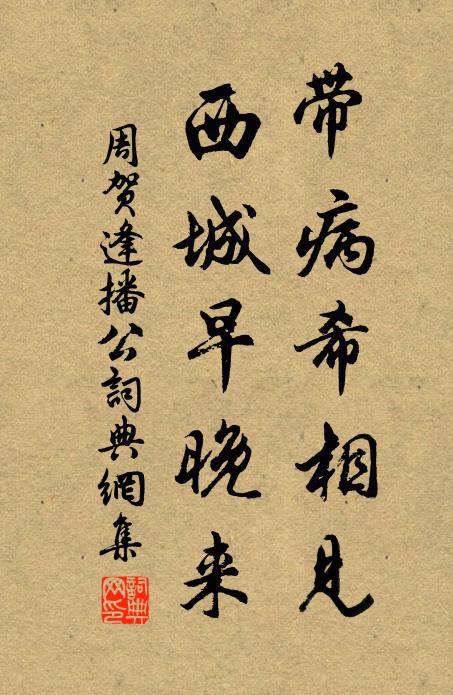 带病希相見
西城早晚来
周贺逢播公詞典網集
詞典网印